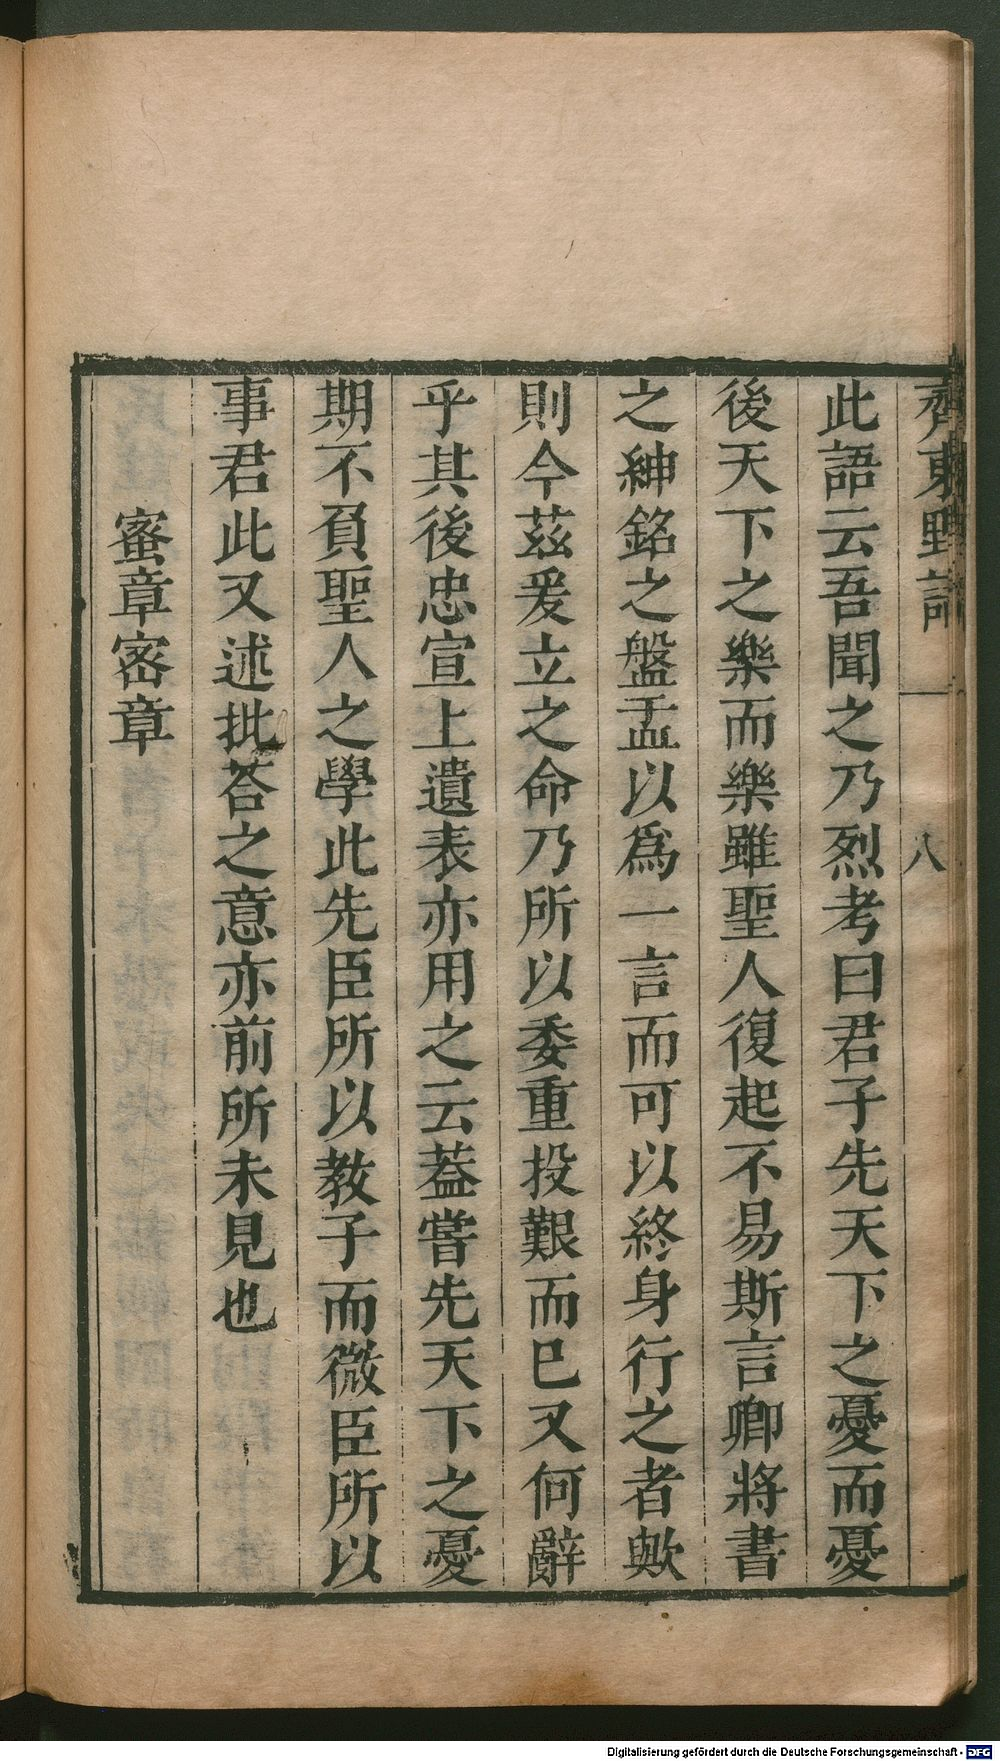 齊東野語 一 八
此語云吾聞之乃烈考曰君子先天下之憂而憂
後天下之樂而樂雖聖人復起不易斯言卿將書
之紳銘之盤盂以爲一言而可以終身行之者歟
則今茲爰立之命乃所以委重投艱而已又何辭
乎其後忠宣上遺表亦用之云葢嘗先天下之憂
期不負聖人之學此先臣所以教子而微臣所以
事君此又述批荅之意亦前所未見也
蜜章密章
Digitalisierung gefördert durch die Deutsche Forschungsgemeinschaft - DFG